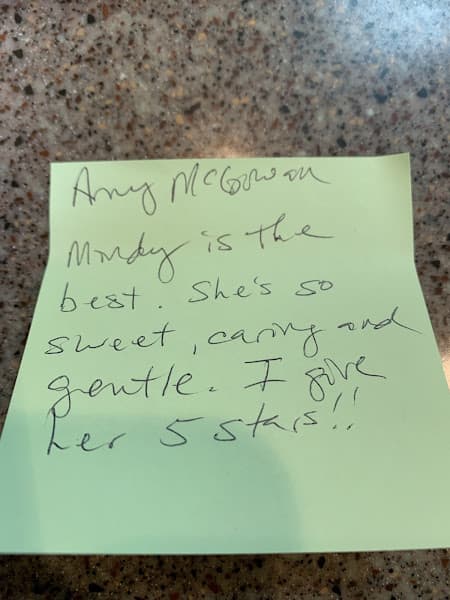 Amy McGowan
Mindy is the
best. She's so
sweet, caring and
gentle. I give
her 5 stars!!